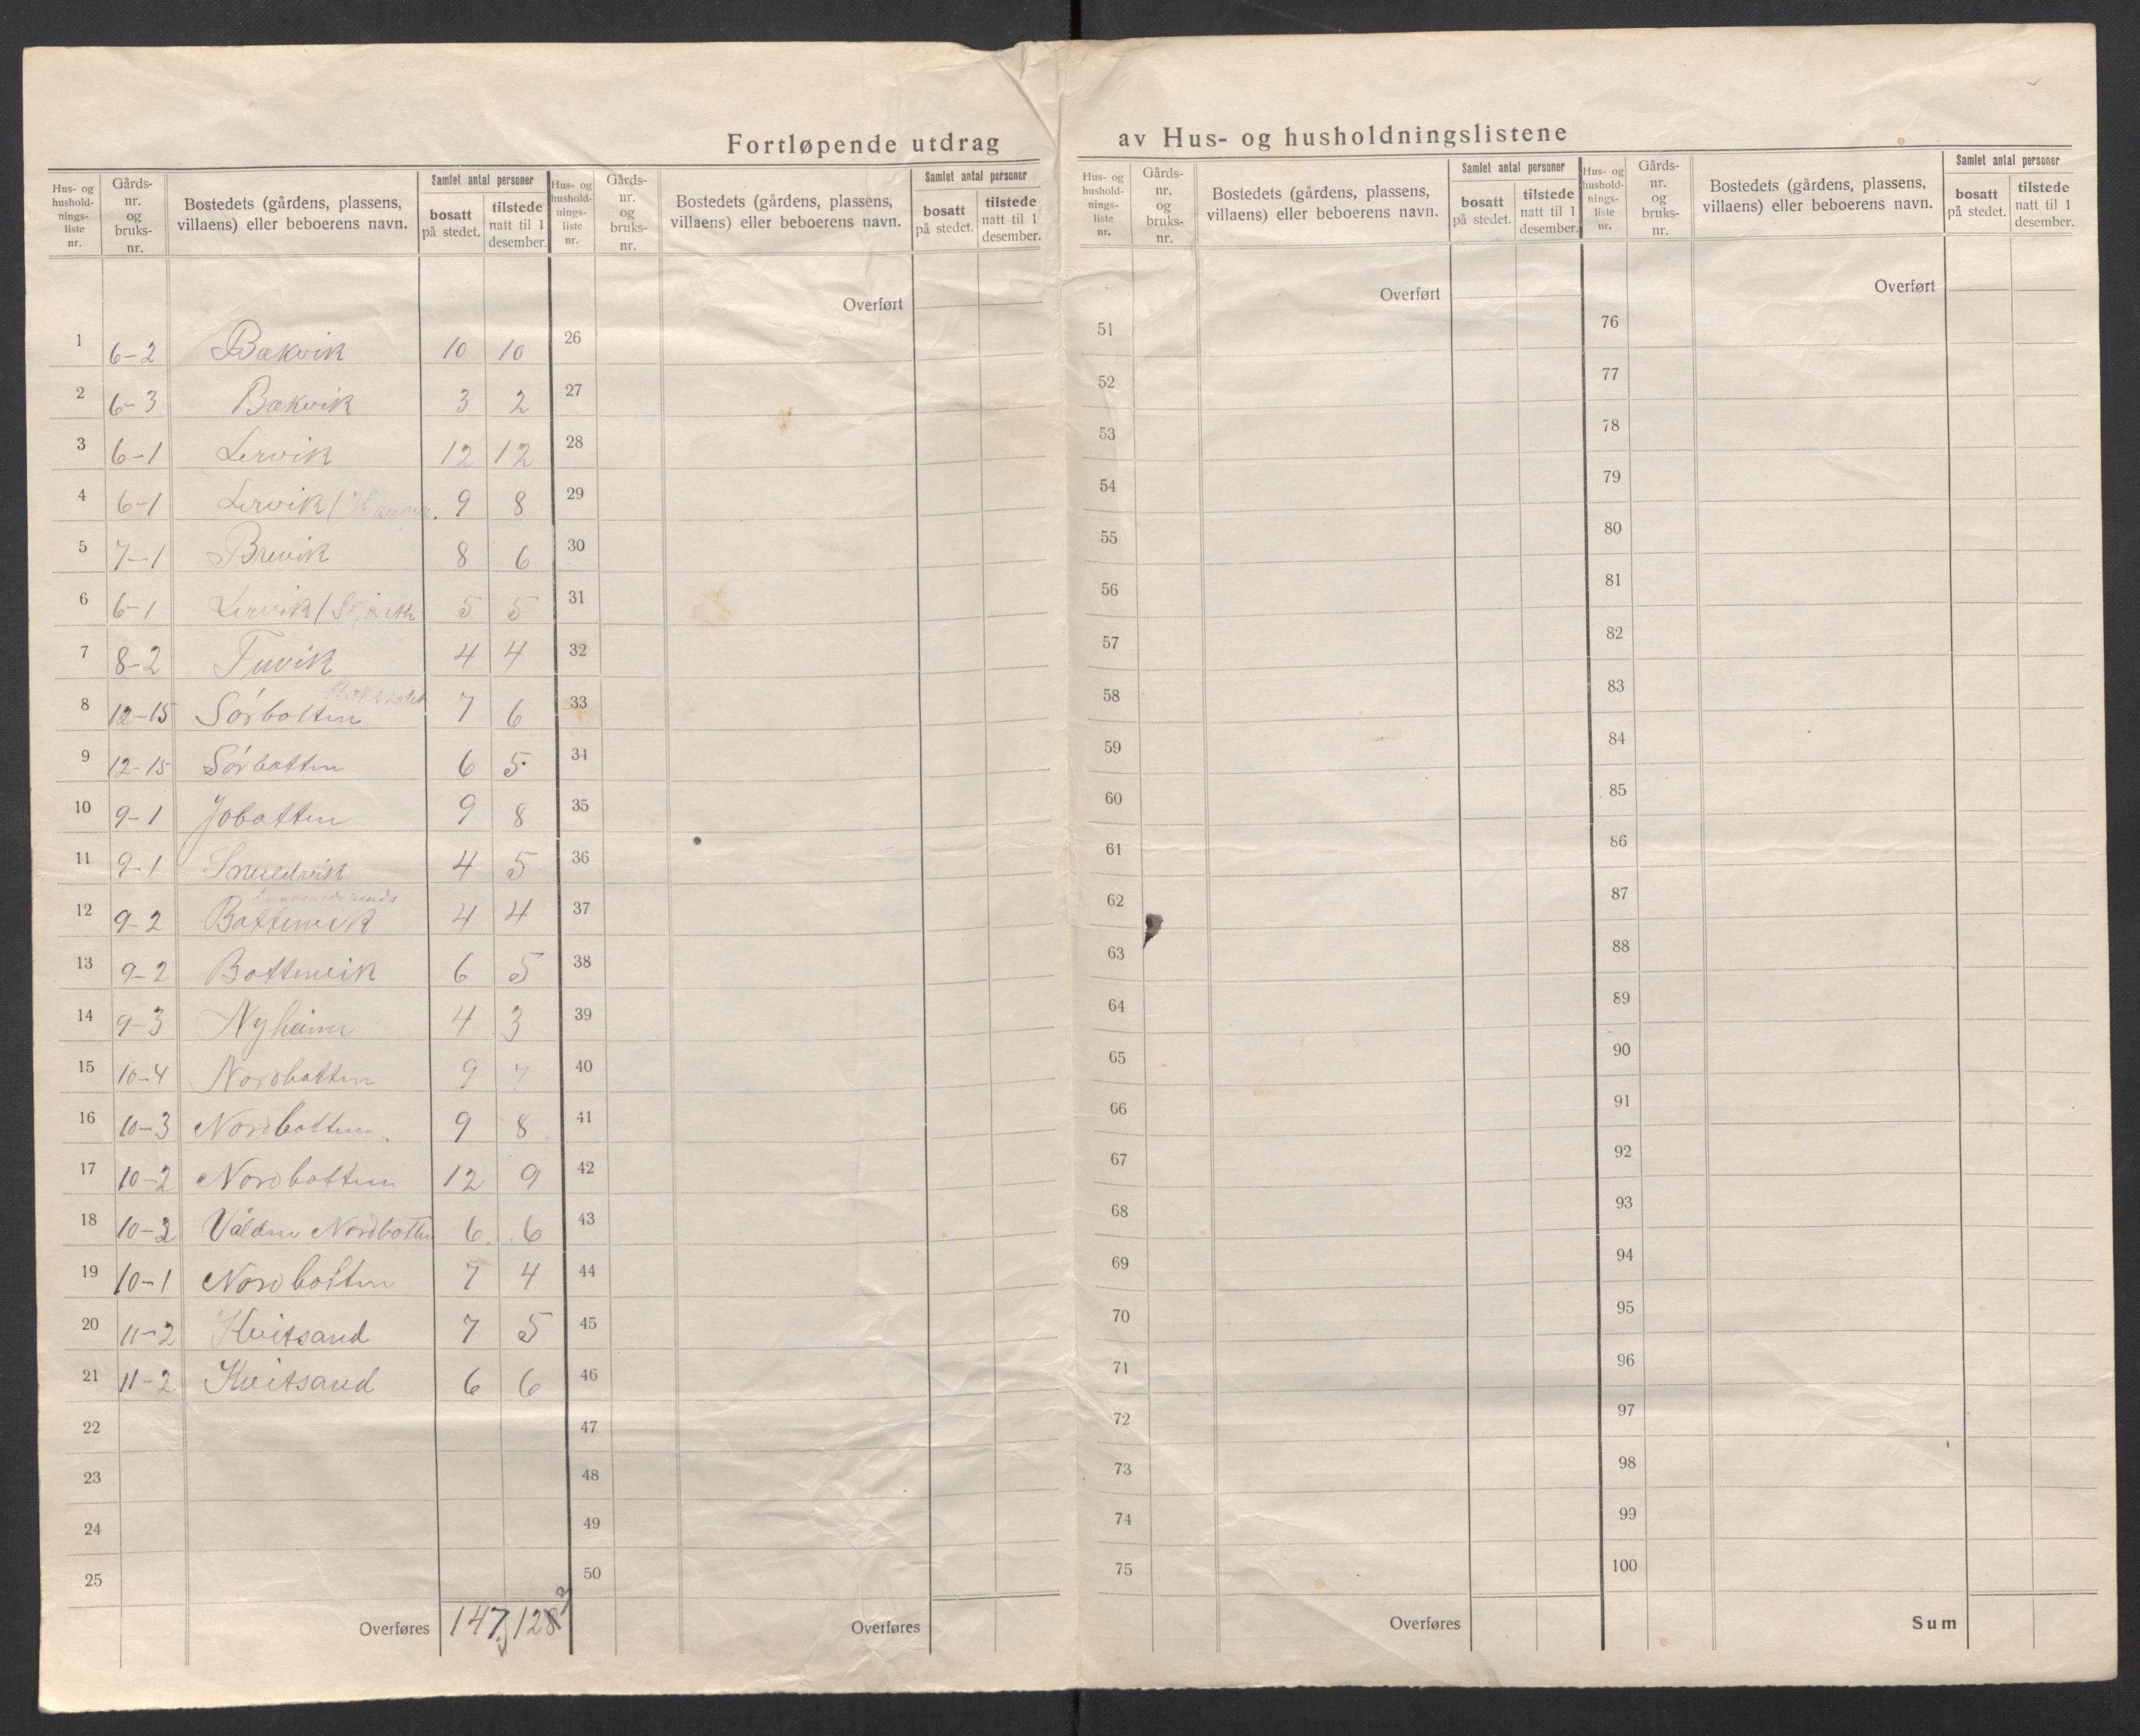 Fortløpende utdrag av Hus- og husholdningslistene
Hus- og hushold-nings-liste nr. Gårds-nr. og bruks-nr. Bostedets (gårdens, plassens, villaens) eller beboerens navn. Samlet antal personer bosatt på stedet. tilstede natt til 1 desember.
1 6-2 Bakvik 10 10
2 6-3 Bakvik 3 2
3 6-1 Lervik 12 12
4 6-1 Lervik / 9 8
5 7-1 Brevik 8 6
6 6-1 Lervik / 5 5
7 8-2 Tuvik 4 4
8 12-15 Sörbotten 7 6
9 12-15 Sörbotten 6 5
10 9-1 Jobotten 9 8
11 9-1 4 5
12 9-2 Bottenvik 4 4
13 9-2 Bottenvik 6 5
14 9-3 Nyheim 4 3
15 10-4 Nordbotten 9 7
16 10-3 Nordbotten 9 8
17 10-2 Nordbotten 12 9
18 10-2 Valden Nordbotten 6 6
19 10-1 Nordbotten 7 4
20 11-2 Kvitsand 7 5
21 11-2 Kvitsand 6 6
22
23
24
25
Overføres 147 128
Hus- og hushold-nings-liste nr. Gårds-nr. og bruks-nr. Bostedets (gårdens, plassens, villaens) eller beboerens navn. Samlet antal personer bosatt på stedet. tilstede natt til 1 desember.
Overført
26
27
28
29
30
31
32
33
34
35
36
37
38
39
40
41
42
43
44
45
46
47
48
49
50
Overføres
Hus- og hushold-nings-liste nr. Gårds-nr. og bruks-nr. Bostedets (gårdens, plassens, villaens) eller beboerens navn. Samlet antal personer bosatt på stedet. tilstede natt til 1 desember.
Overført
51
52
53
54
55
56
57
58
59
60
61
62
63
64
65
66
67
68
69
70
71
72
73
74
75
Overføres
Hus- og hushold-nings-liste nr. Gårds-nr. og bruks-nr. Bostedets (gårdens, plassens, villaens) eller beboerens navn. Samlet antal personer bosatt på stedet. tilstede natt til 1 desember.
Overført
76
77
78
79
80
81
82
83
84
85
86
87
88
89
90
91
92
93
94
95
96
97
98
99
100
Sum